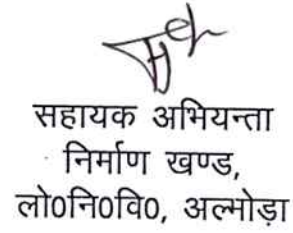 सहायक अभियन्ता
निर्माण खण्ड,
लो0नि0वि0, अल्मोड़ा